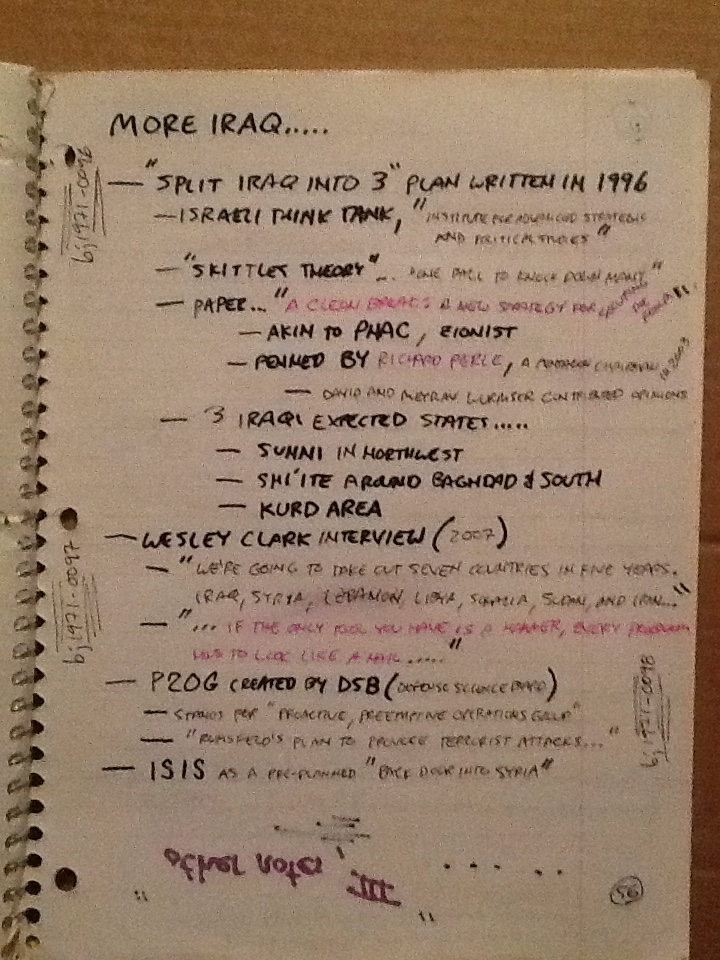 MORE IRAQ.....
— "SPLIT IRAQ INTO 3" PLAN WRITTEN IN 1996
— ISRAELI THINK TANK, "INSTITUTE FOR ADVANCED STRATEGIC
AND POLITICAL STUDIES"
— "SKITTLES THEORY"... "ONE BALL TO KNOCK DOWN MANY"
— PAPER... "A CLEAN BREAK: A NEW STRATEGY FOR SECURING THE REALM".
— AKIN TO PNAC, ZIONIST
— PENNED BY RICHARD PERLE, A PENTAGON CHAIRMAN IN 2003
— DAVID AND MEYRAV WURMSER CONTRIBUTED OPINIONS
— 3 IRAQI EXPECTED STATES.....
— SUNNI IN NORTHWEST
— SHI'ITE AROUND BAGHDAD & SOUTH
— KURD AREA
— WESLEY CLARK INTERVIEW (2007)
— "WE'RE GOING TO TAKE OUT SEVEN COUNTRIES IN FIVE YEARS.
IRAQ, SYRIA, LEBANON, LIBYA, SOMALIA, SUDAN, AND IRAN..."
— "... IF THE ONLY TOOL YOU HAVE IS A HAMMER, EVERY PROBLEM
HAS TO LOOK LIKE A NAIL....."
— P2OG CREATED BY DSB (DEFENSE SCIENCE BOARD)
— STANDS FOR "PROACTIVE, PREEMPTIVE OPERATIONS GROUP"
— "RUMSFELD'S PLAN TO PROVOKE TERRORIST ATTACKS..."
— ISIS AS A PRE-PLANNED "BACK DOOR INTO SYRIA"
other notes III
56
bj1971-0096
bj1971-0097
bj1971-0098